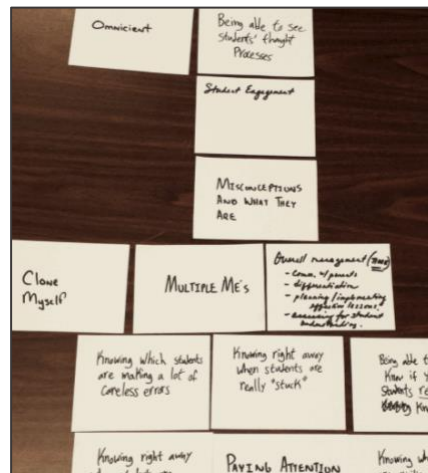 Omnicient
Being able to see
students' thought
Processes
Student Engagement
MISCONCEPTIONS
AND WHAT THEY
ARE
Clone
Myself
MULTIPLE ME'S
Overall management (TIME)
- Comm. w/ parents
- differentiation
- planning/implementing
effective lessons
- Assessing for student
understanding.
Knowing which students
are making a lot of
careless errors
Knowing right away
when students are
really "stuck"
Being able t
Know if y
Students re
Kn
Knowing right away
PAYING ATTENTION
Knowing wh